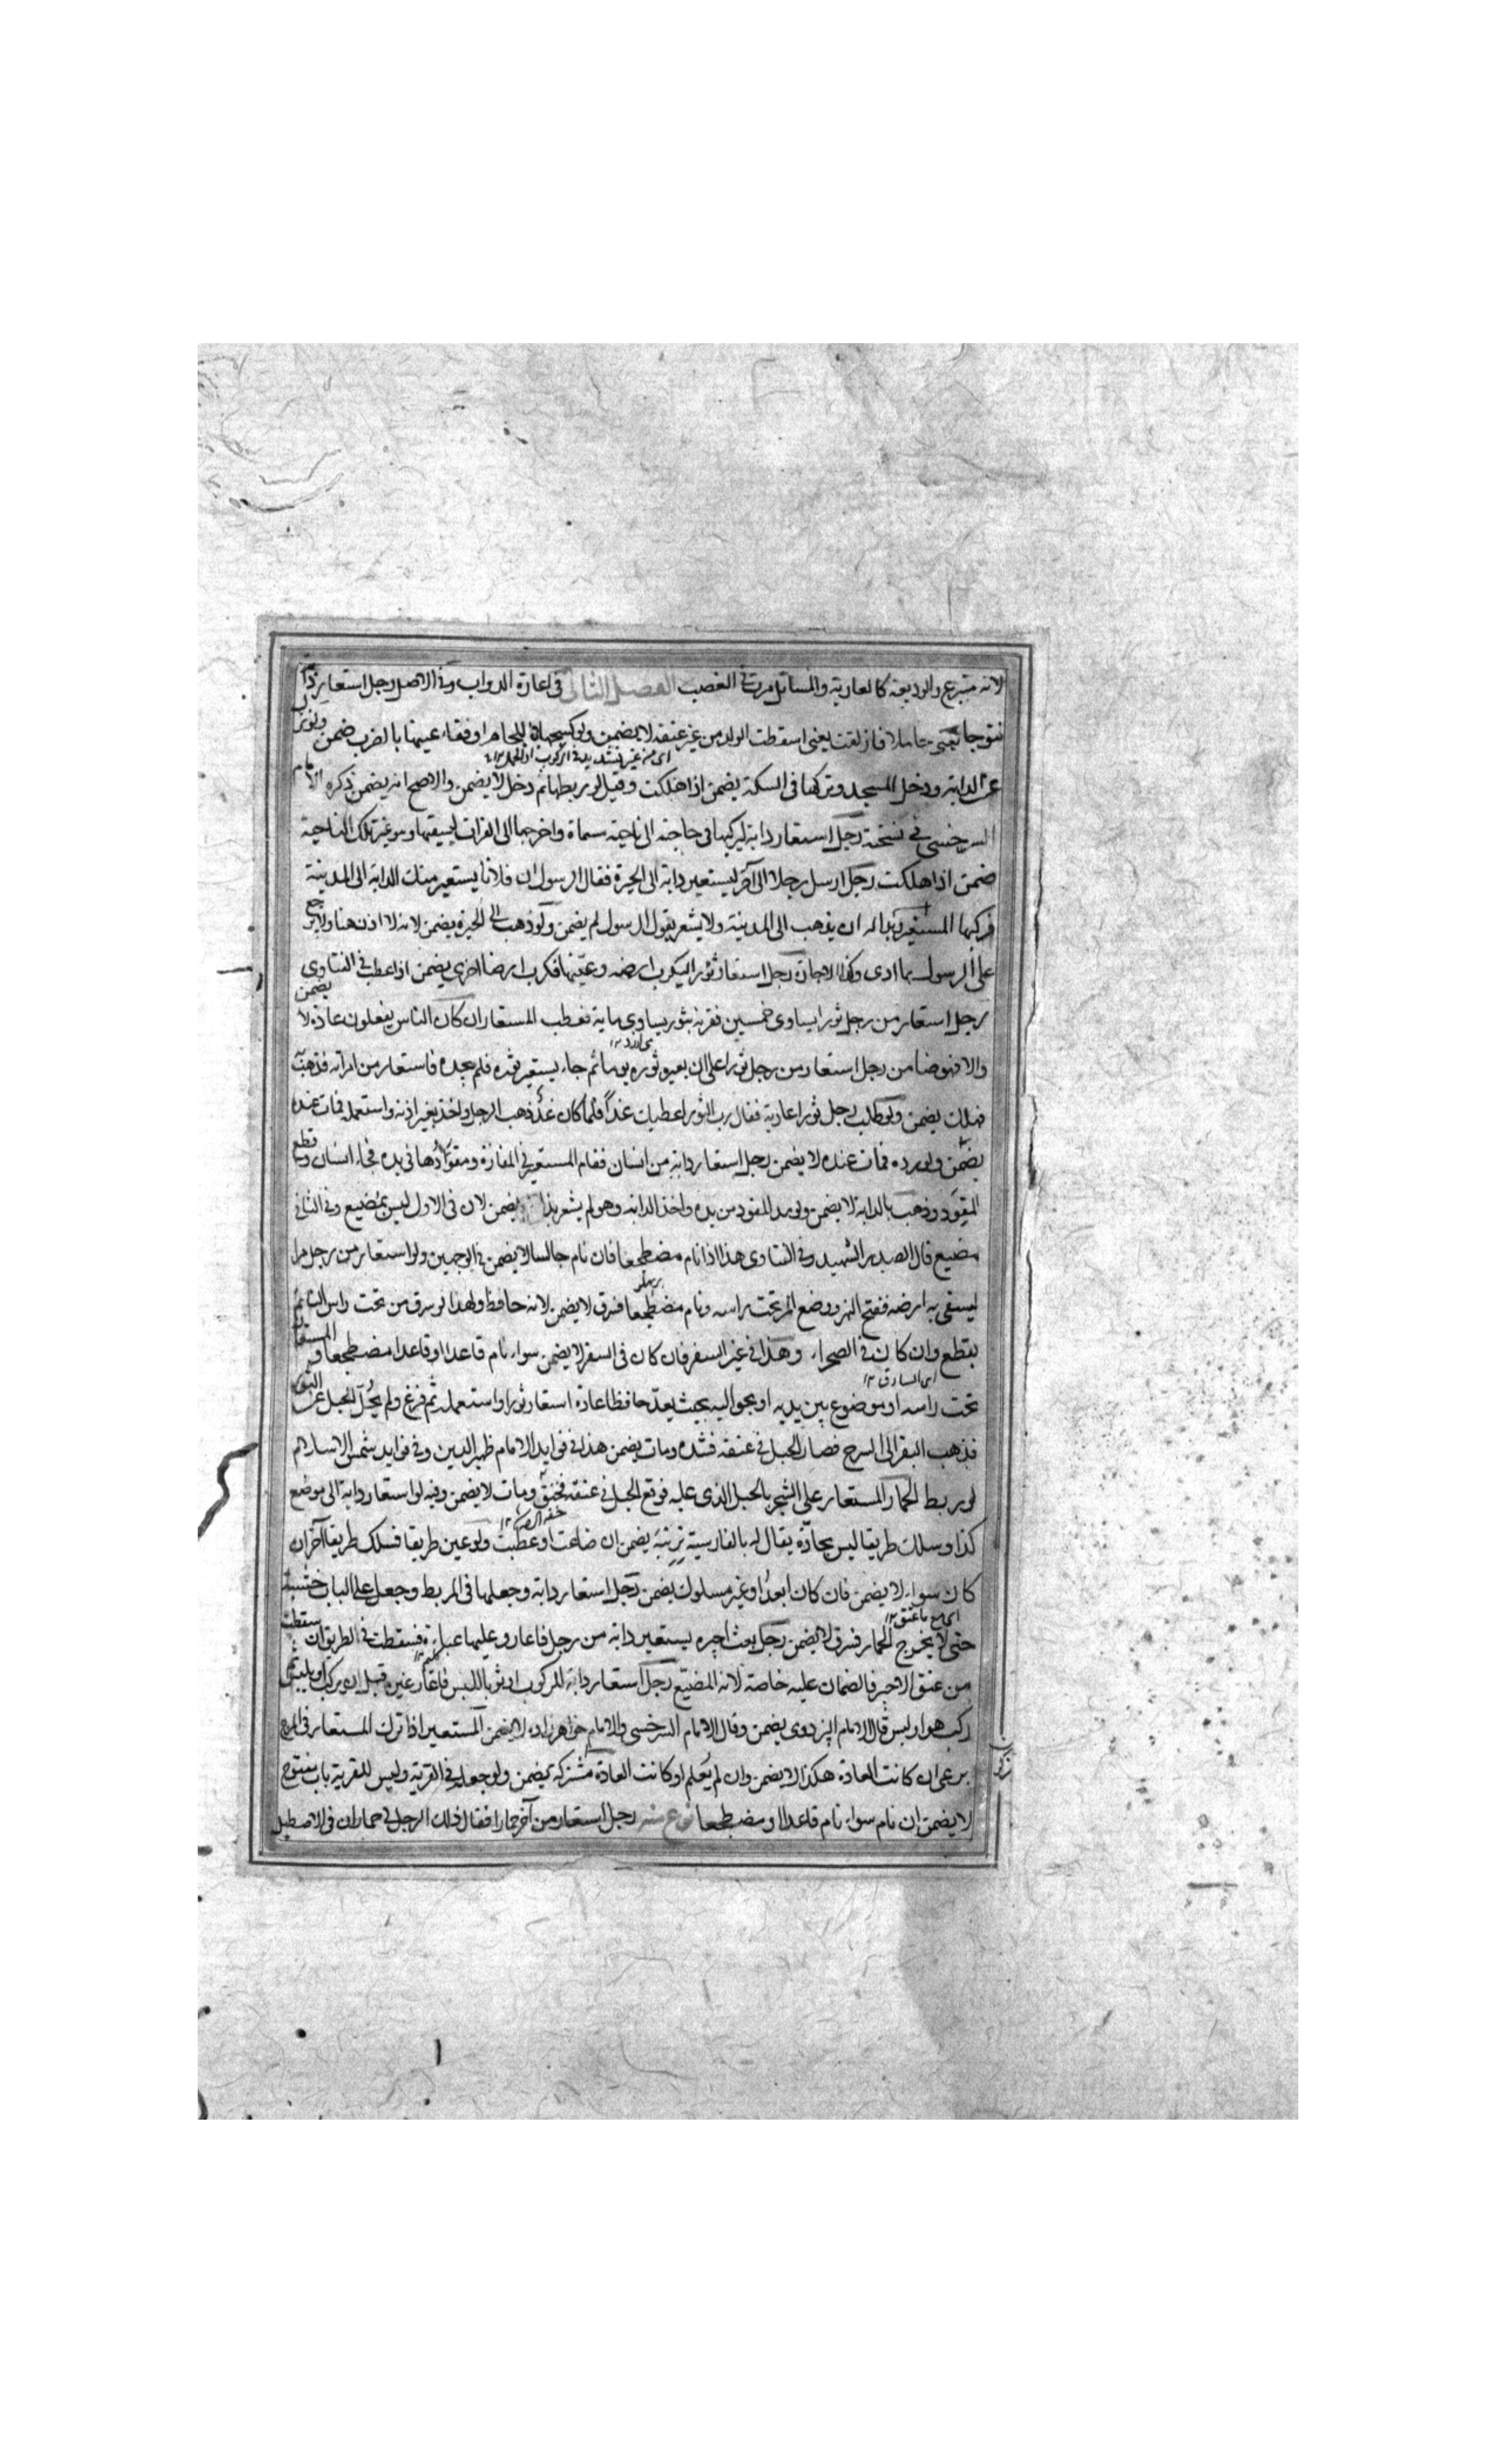 لانه متبرع والوديعة كالعارية والمسائل مرت فى الغصب الفصل الثانى فى اعارة الدواب وفى الاصل رجل استعار دابة
نتوجا يعنى حاملا فازلقت يعنى اسقطت الولد من غير عنفه لا يضمن ولو كبحها باللجام او فقاء عينها بالضرب ضمن ولو نزل
اى من غير تشديد فى الركوب او الحمل ١٢
عن الدابة ودخل المسجد وتركها فى السكة يضمن اذا هلكت وقيل لو ربطها ثم دخل لا يضمن والاصح انه يضمن ذكره الامام
السرخسى فى نسخته رجل استعار دابة ليركبها فى حاجته الى ناحية سماة واخرجها الى الفرات ليسقيها وهو غير تلك الناحية
ضمن اذا هلكت رجل ارسل رجلا الى آخر ليستعير دابة الى الحيرة فقال الرسول ان فلانا يستعير منك الدابة الى المدينة
فركبها المستعير وبدا له ان يذهب الى المدينة ولا يشعر بقول الرسول لم يضمن ولو ذهب الى الحيرة يضمن لانه لا اذن هنا ولا يرجع
على الرسول بما ادى وكذا الاجارة رجل استعار ثورا ليكرب ارضه وعينها فكرب ارضا اخرى يضمن اذا عطب فى الفتاوى
رجل استعار من رجل ثورا يساوى خمسين فقرنه بثور يساوى ماية فعطب المستعار ان كان الناس يفعلون عادة لا يضمن
والا فهو ضامن رجل استعار من رجل ثورا على ان يعيره ثوره يوما ثم جاء يستعير ثوره فلم يجده فاستعار من امرأته فذهب
فهلك يضمن ولو طلب رجل ثورا عارية فقال رب الثور اعطيك غدا فلما كان غد ذهب الرجل واخذ بغير اذنه واستعمله فمات عنده
يضمن ولو رده فمات عنده لا يضمن رجل استعار دابة من انسان فقام المستعير فى المفازة ومقودها فى يده فجاء انسان وقطع
المقود وذهب بالدابة لا يضمن ولو مد المقود من يده واخذ الدابة وهو لم يشعر بذلك يضمن لان فى الاول ليس بمضيع وفى الثانى
مضيع قال الصدر الشهيد وفى الفتاوى هذا اذا نام مضطجعا فان نام جالسا لا يضمن فى الوجهين ولو استعار من رجل مرا
ليسقى به ارضه ففتح النهر ووضع المر تحت راسه ونام مضطجعا فسرق لا يضمن لانه حافظ ولهذا لو سرق من تحت راس النائم
يقطع وان كان فى الصحراء وهذا فى غير السفر فان كان فى السفر لا يضمن سواء نام قاعدا او مضطجعا والمستعار
اى السارق ١٢
تحت راسه او موضوع بين يديه او بحواليه بحيث يعد حافظا عادة استعار ثورا واستعمله ثم فرغ ولم يحل الحبل عن الثور
فذهب البقر الى السرح فصار الحبل فى عنقه فشده ومات يضمن هذا فى فوايد الامام ظهير الدين وفى فوايد شمس الاسلام
لو ربط الحمار المستعار على الشجر بالحبل الذى عليه فوقع الحبل فى عنقه فخنق ومات لا يضمن وفيه لو استعار دابة الى موضع
كذا وسلك طريقا ليس بجادة يقال له بالفارسية يضمن ان ضاعت او عطبت ولو عين طريقا فسلك طريقا آخر ان
كان سواء لا يضمن فان كان ابعد او غير مسلوك يضمن رجل استعار دابة وجعلها فى المربط وجعل على الباب خشبة
حتى لا يخرج الحمار فسرق لا يضمن رجل بعث اجيره يستعير دابة من رجل فاعار وعليها عباءة فسقطت فى الطريق ان سقطت
من عنق الاجير فالضمان عليه خاصة لانه المضيع رجل استعار دابة للركوب او ثوبا للبس فاعار غيره قبل ان يركب او يلبس ثم
ركب هو او لبس قال الامام البزدوى يضمن وقال الامام السرخسى والامام خواهرزاده لا يضمن المستعير اذا ترك المستعار فى المرج
يرعى ان كانت العادة هكذا لا يضمن وان لم يعلم او كانت العادة مشتركة يضمن ولو جعله فى القرية وليس للقرية باب مفتوح
لا يضمن ان نام سواء نام قاعدا او مضطجعا نوع منه رجل استعار من آخر حمارا فقال ذلك الرجل لى حماران فى الاصطبل